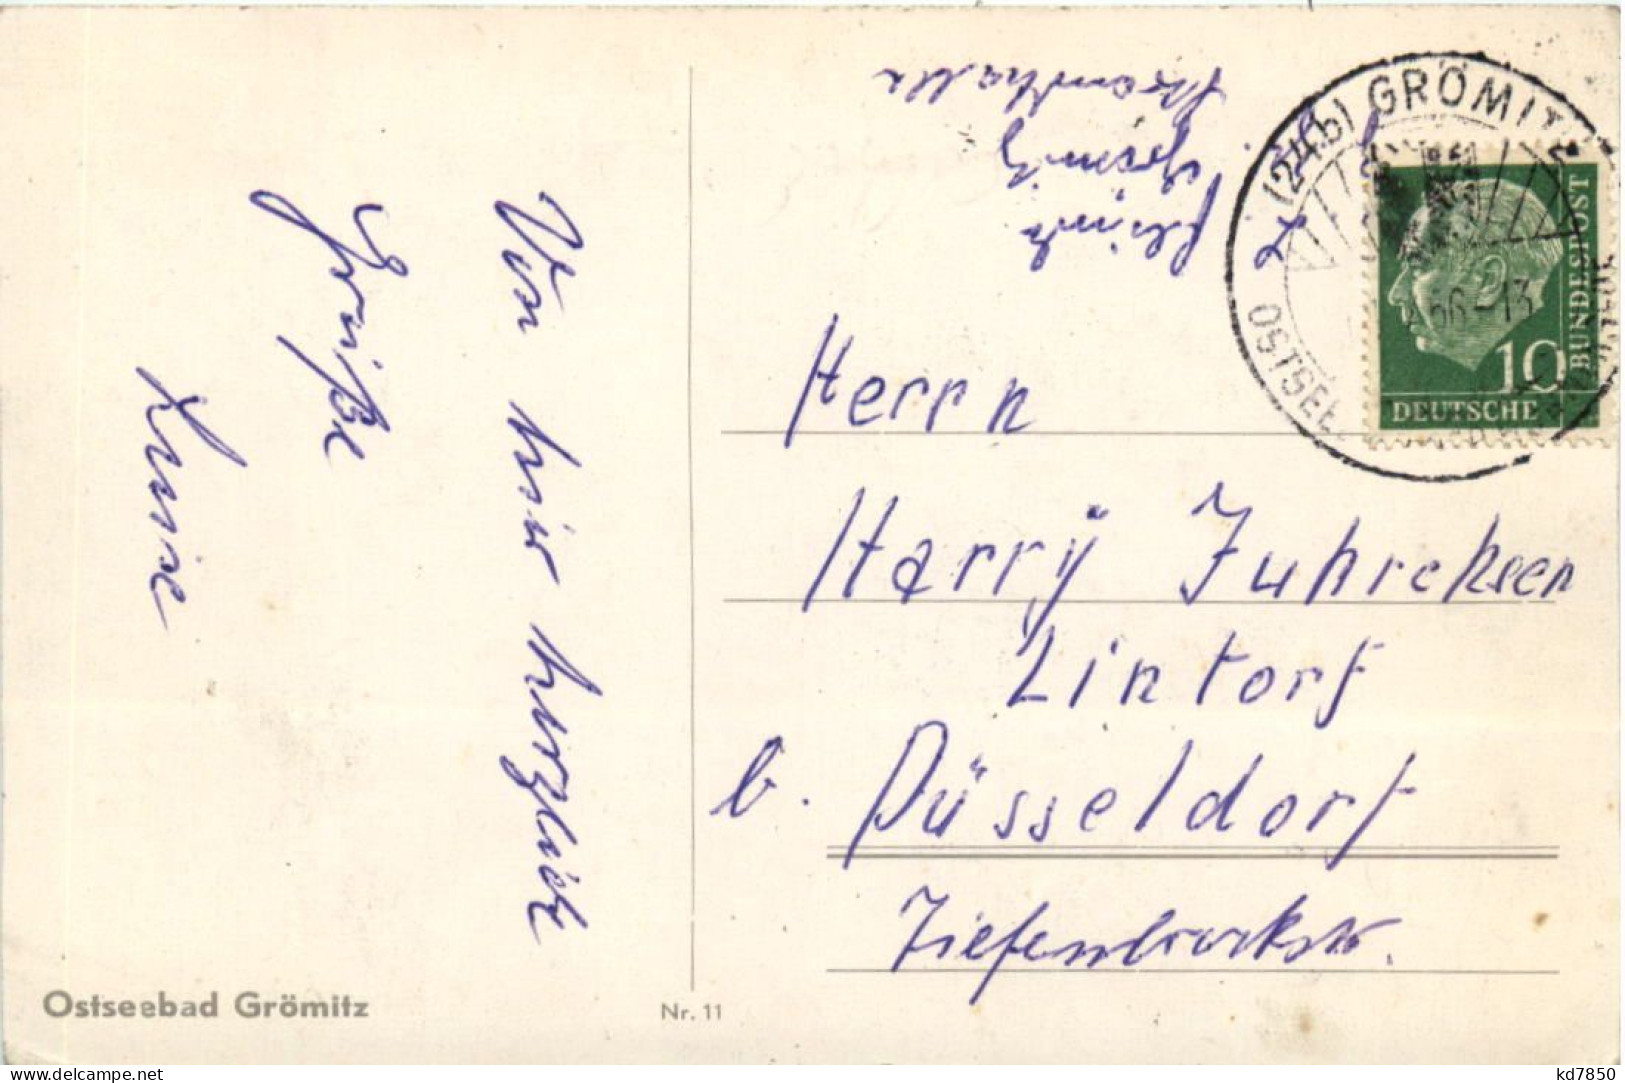 Von hier herzlich
Grüße
Luise
Grömitz
Strandhalle
(24b) GRÖMITZ
OSTSEE
56-13
10
DEUTSCHE
BUNDESPOST
Herrn
Harry
Lintorf
b. Düsseldorf
Tiefenbroichstr.
Ostseebad Grömitz
Nr. 11
www.delcampe.net
kd7850